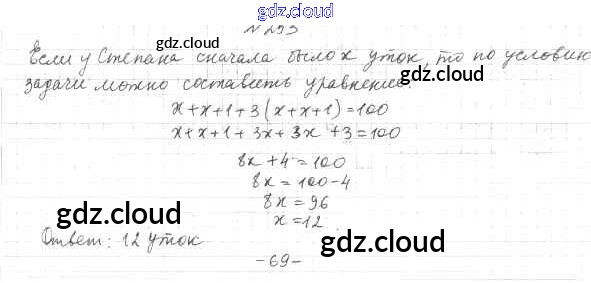 gdz.cloud
№ 293
Если у Степана сначала было x уток, то по условию
задачи можно составить уравнение:
x+x+1+3(x+x+1)=100
x+x+1+3x+3x+3=100
8x+4=100
8x=100-4
8x=96
gdz.cloud
x=12
gdz.cloud
Ответ: 12 уток
gdz.cloud
-69-